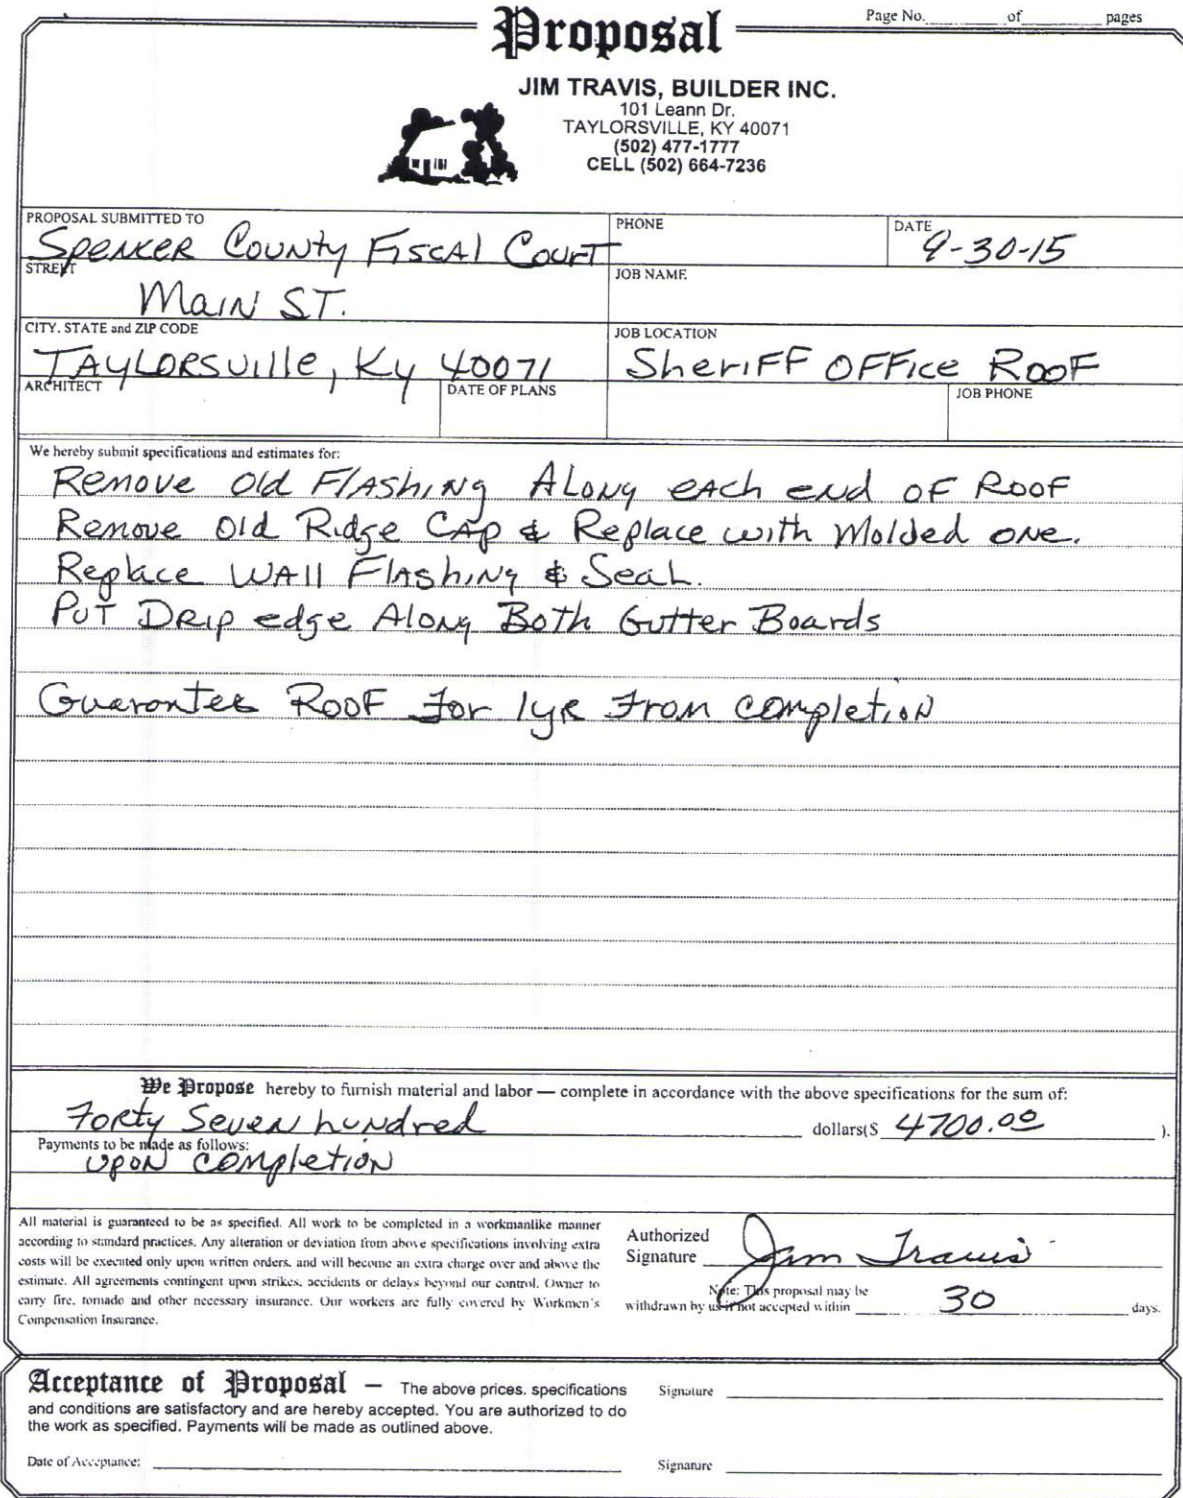 Page No. of pages
Proposal
JIM TRAVIS, BUILDER INC.
101 Leann Dr.
TAYLORSVILLE, KY 40071
(502) 477-1777
CELL (502) 664-7236
PROPOSAL SUBMITTED TO PHONE DATE
Spencer County Fiscal Court 9-30-15
STREET JOB NAME
Main ST.
CITY, STATE and ZIP CODE JOB LOCATION
TAYLORSville, Ky 40071 SheriFF OFFice RooF
ARCHITECT DATE OF PLANS JOB PHONE
We hereby submit specifications and estimates for:
Remove Old FlAshing ALong eAch end oF RooF
Remove Old Ridge CAp & Replace with Molded one.
Replace WAll FlAshing & SeaL.
PuT DRip edge Along Both Gutter Boards
Guarontee RooF For 1yR From completion
We Propose hereby to furnish material and labor — complete in accordance with the above specifications for the sum of:
Forty Seven hundred dollars($ 4700.00 ).
Payments to be made as follows:
upon completion
All material is guaranteed to be as specified. All work to be completed in a workmanlike manner
according to standard practices. Any alteration or deviation from above specifications involving extra
costs will be executed only upon written orders, and will become an extra charge over and above the
estimate. All agreements contingent upon strikes, accidents or delays beyond our control. Owner to
carry fire, tornado and other necessary insurance. Our workers are fully covered by Workmen's
Compensation Insurance.
Authorized
Signature Jim Travis
Note: This proposal may be
withdrawn by us if not accepted within 30 days.
Acceptance of Proposal — The above prices, specifications
and conditions are satisfactory and are hereby accepted. You are authorized to do
the work as specified. Payments will be made as outlined above.
Signature
Date of Acceptance:
Signature